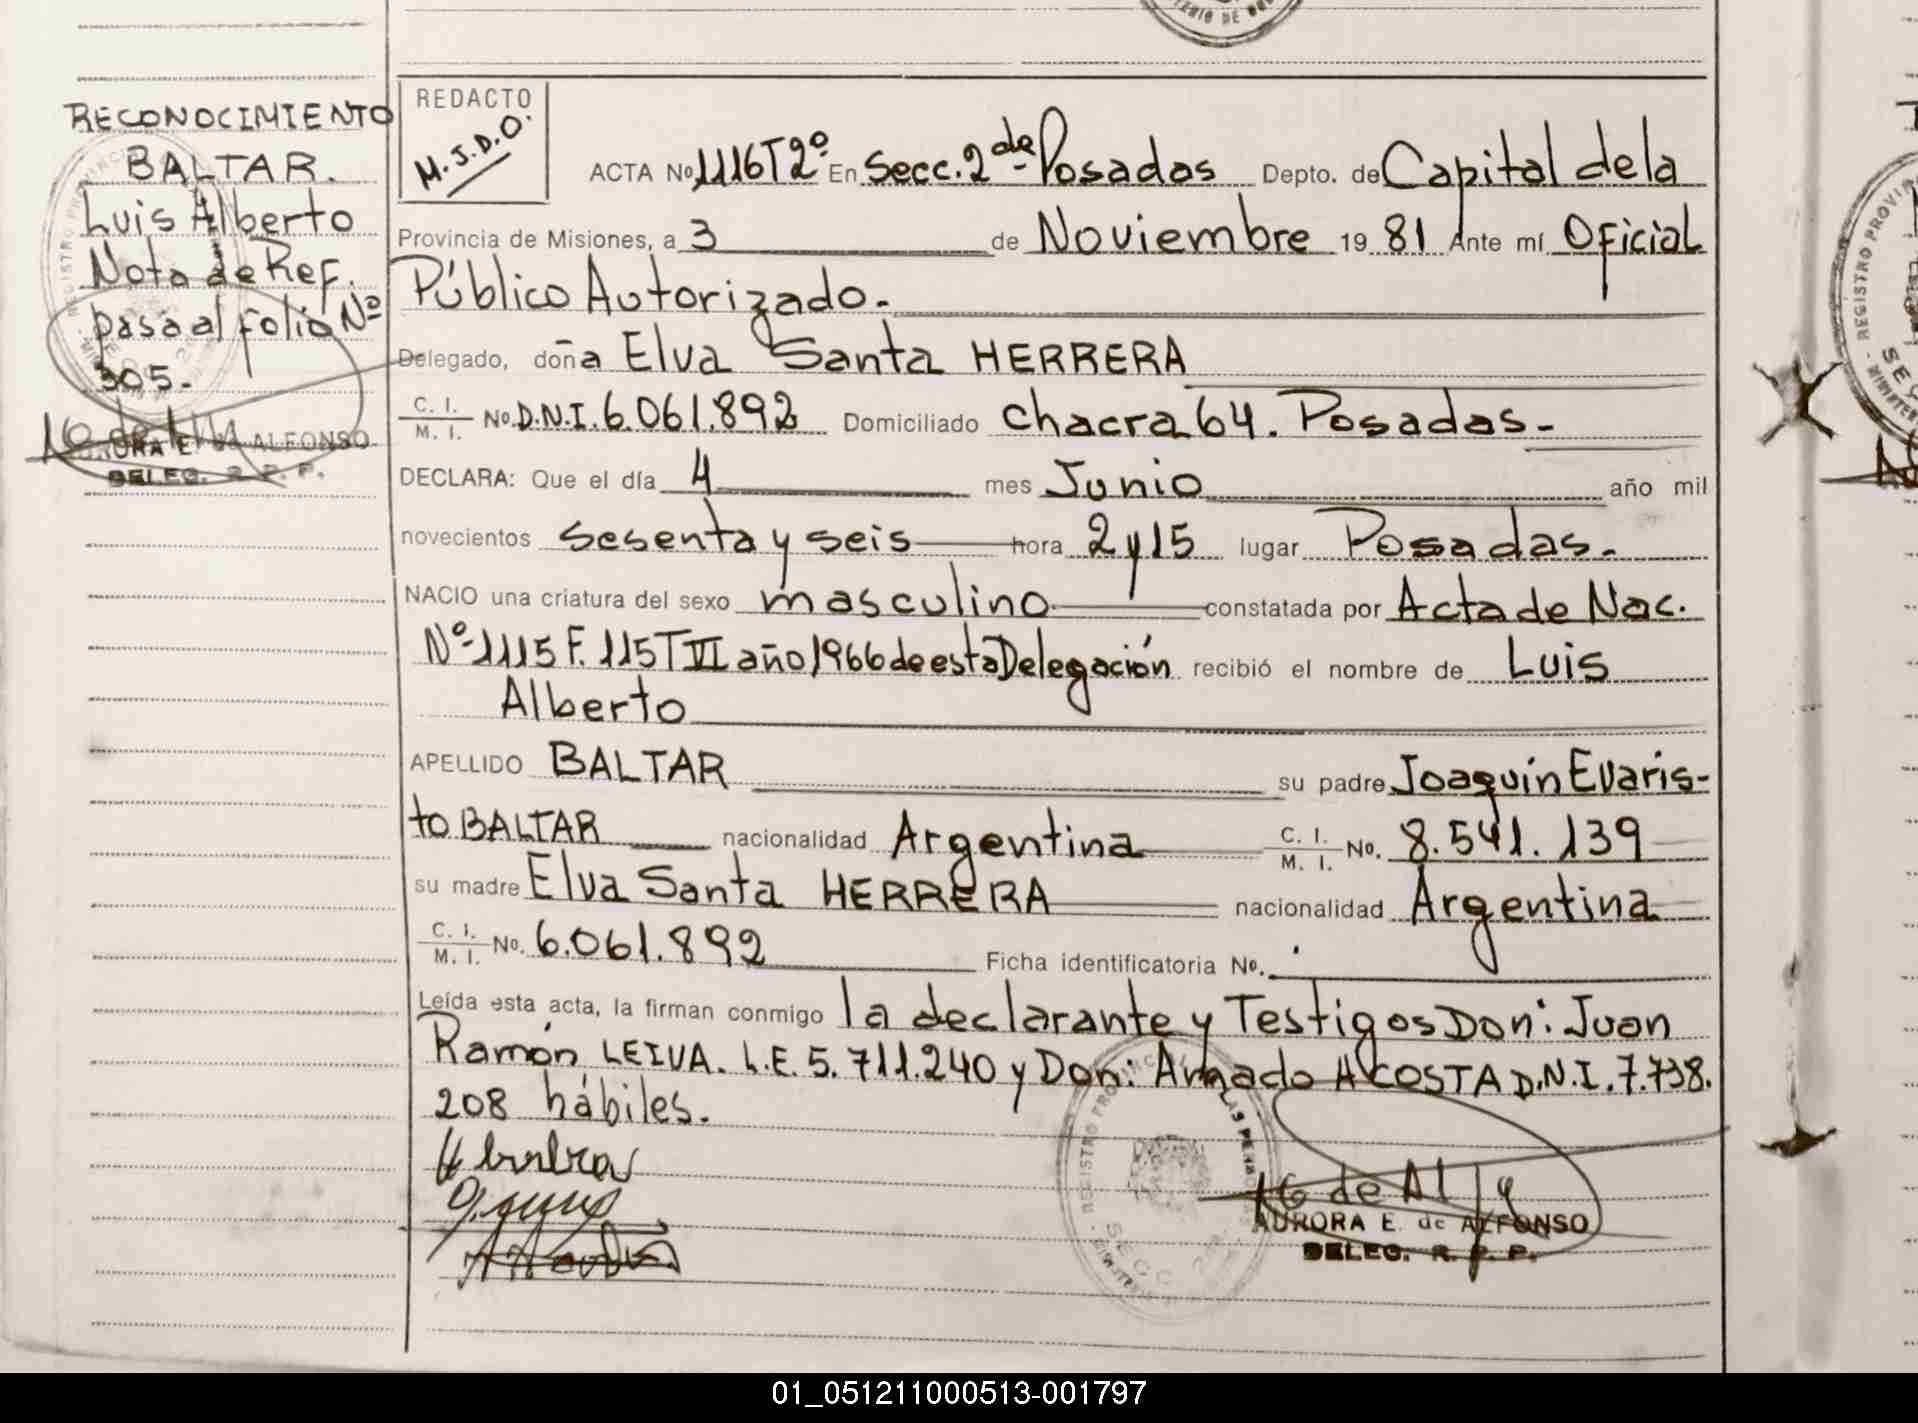 RECONOCIMIENTO
BALTAR.
Luis Alberto
Nota de Ref.
pasa al folio Nº
305.-
AURORA E. de ALFONSO
DELEG. R. P. P.
REDACTO
M.J.D.O.
ACTA Nº 1116 T 2º En Secc. 2da- Posadas Depto. de Capital de la
Provincia de Misiones, a 3 de Noviembre 19 81 Ante mí Oficial
Público Autorizado.-
Delegado, doña Elva Santa HERRERA
C. I. M. I. Nº D.N.I. 6.061.892 Domiciliado Chacra 64. Posadas.-
DECLARA: Que el día 4 mes Junio año mil
novecientos sesenta y seis hora 2 y 15 lugar Posadas.-
NACIO una criatura del sexo masculino constatada por Acta de Nac.
Nº 1115 F. 115 T VI año 1966 de esta Delegación recibió el nombre de Luis
Alberto
APELLIDO BALTAR su padre Joaquín Evaris-
to BALTAR nacionalidad Argentina C. I. M. I. No. 8.541.139
su madre Elva Santa HERRERA nacionalidad Argentina
C. I. M. I. No. 6.061.892 Ficha identificatoria No.
Leída esta acta, la firman conmigo la declarante y Testigos Don: Juan
Ramón LEIVA. L.E. 5.711.240 y Don: Armado ACOSTA D.N.I. 7.738.
208 hábiles.-
REGISTRO PROVINCIAL DE LAS PERSONAS
SECC. 2da.
AURORA E. de ALFONSO
DELEG. R. P. P.
01_051211000513-001797